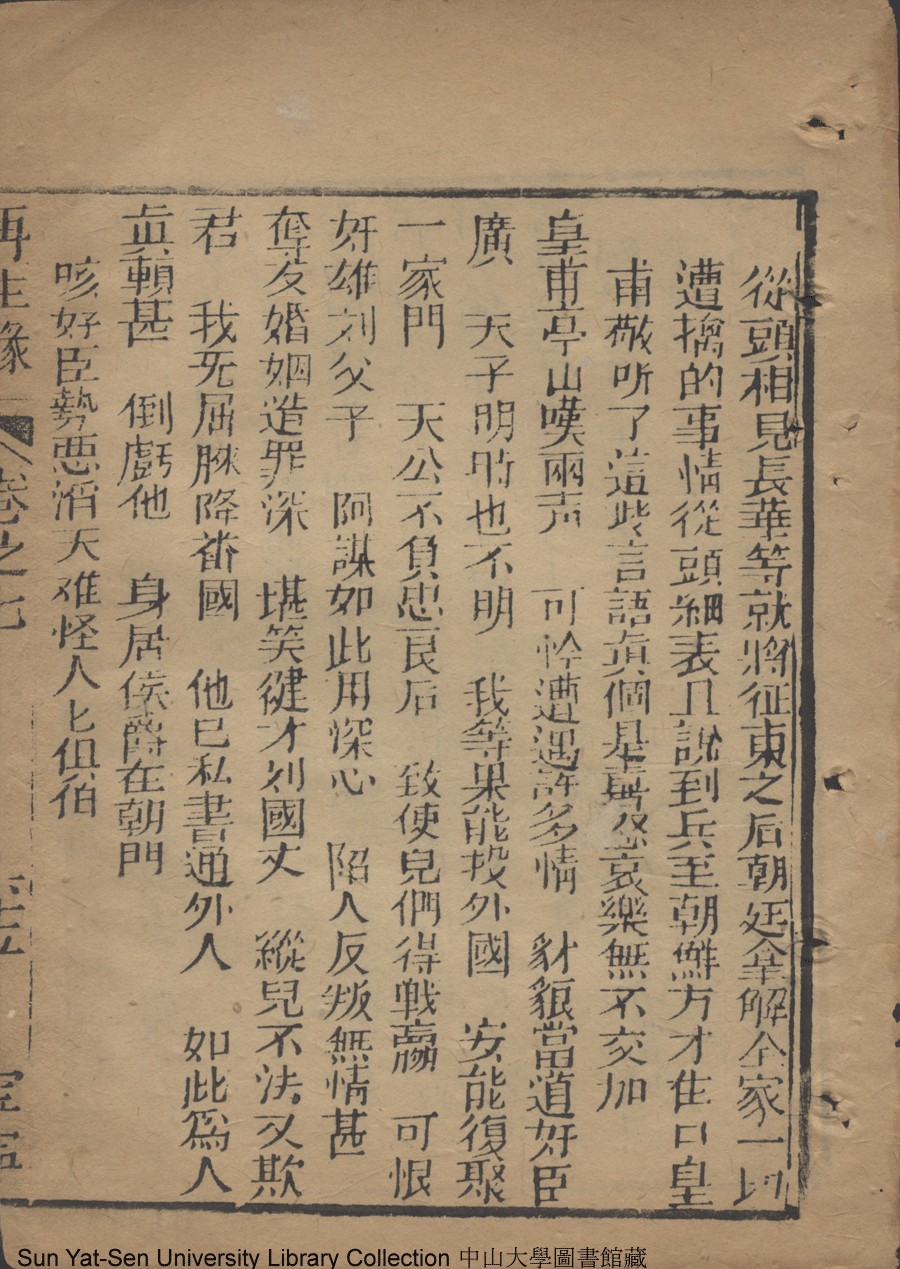 從頭相見長華等就將征東之后朝廷拿解全家一切
遭擒的事情從頭細表且說到兵至朝鮮方才住口皇
甫敬听了這些言語真個是喜怒哀樂無不交加
皇甫亭山嘆兩声　可怜遭遇許多情　豺狼當道奸臣
廣　天子明时也不明　我等果能投外國　安能復聚
一家門　天公不負忠良后　致使兒們得戦贏　可恨
奸雄刘父子　阿謀如此用深心　陷人反叛無情甚
奪友婚姻造罪深　堪笑健才刘國丈　縱兒不法又欺
君　我死屈膝降畨國　他已私書通外人　如此爲人
真賴甚　倒虧他　身居侯爵在朝門
咳奸臣勢悪滔天难怪人匕但伯
再生緣　卷之七
Sun Yat-Sen University Library Collection 中山大學圖書館藏